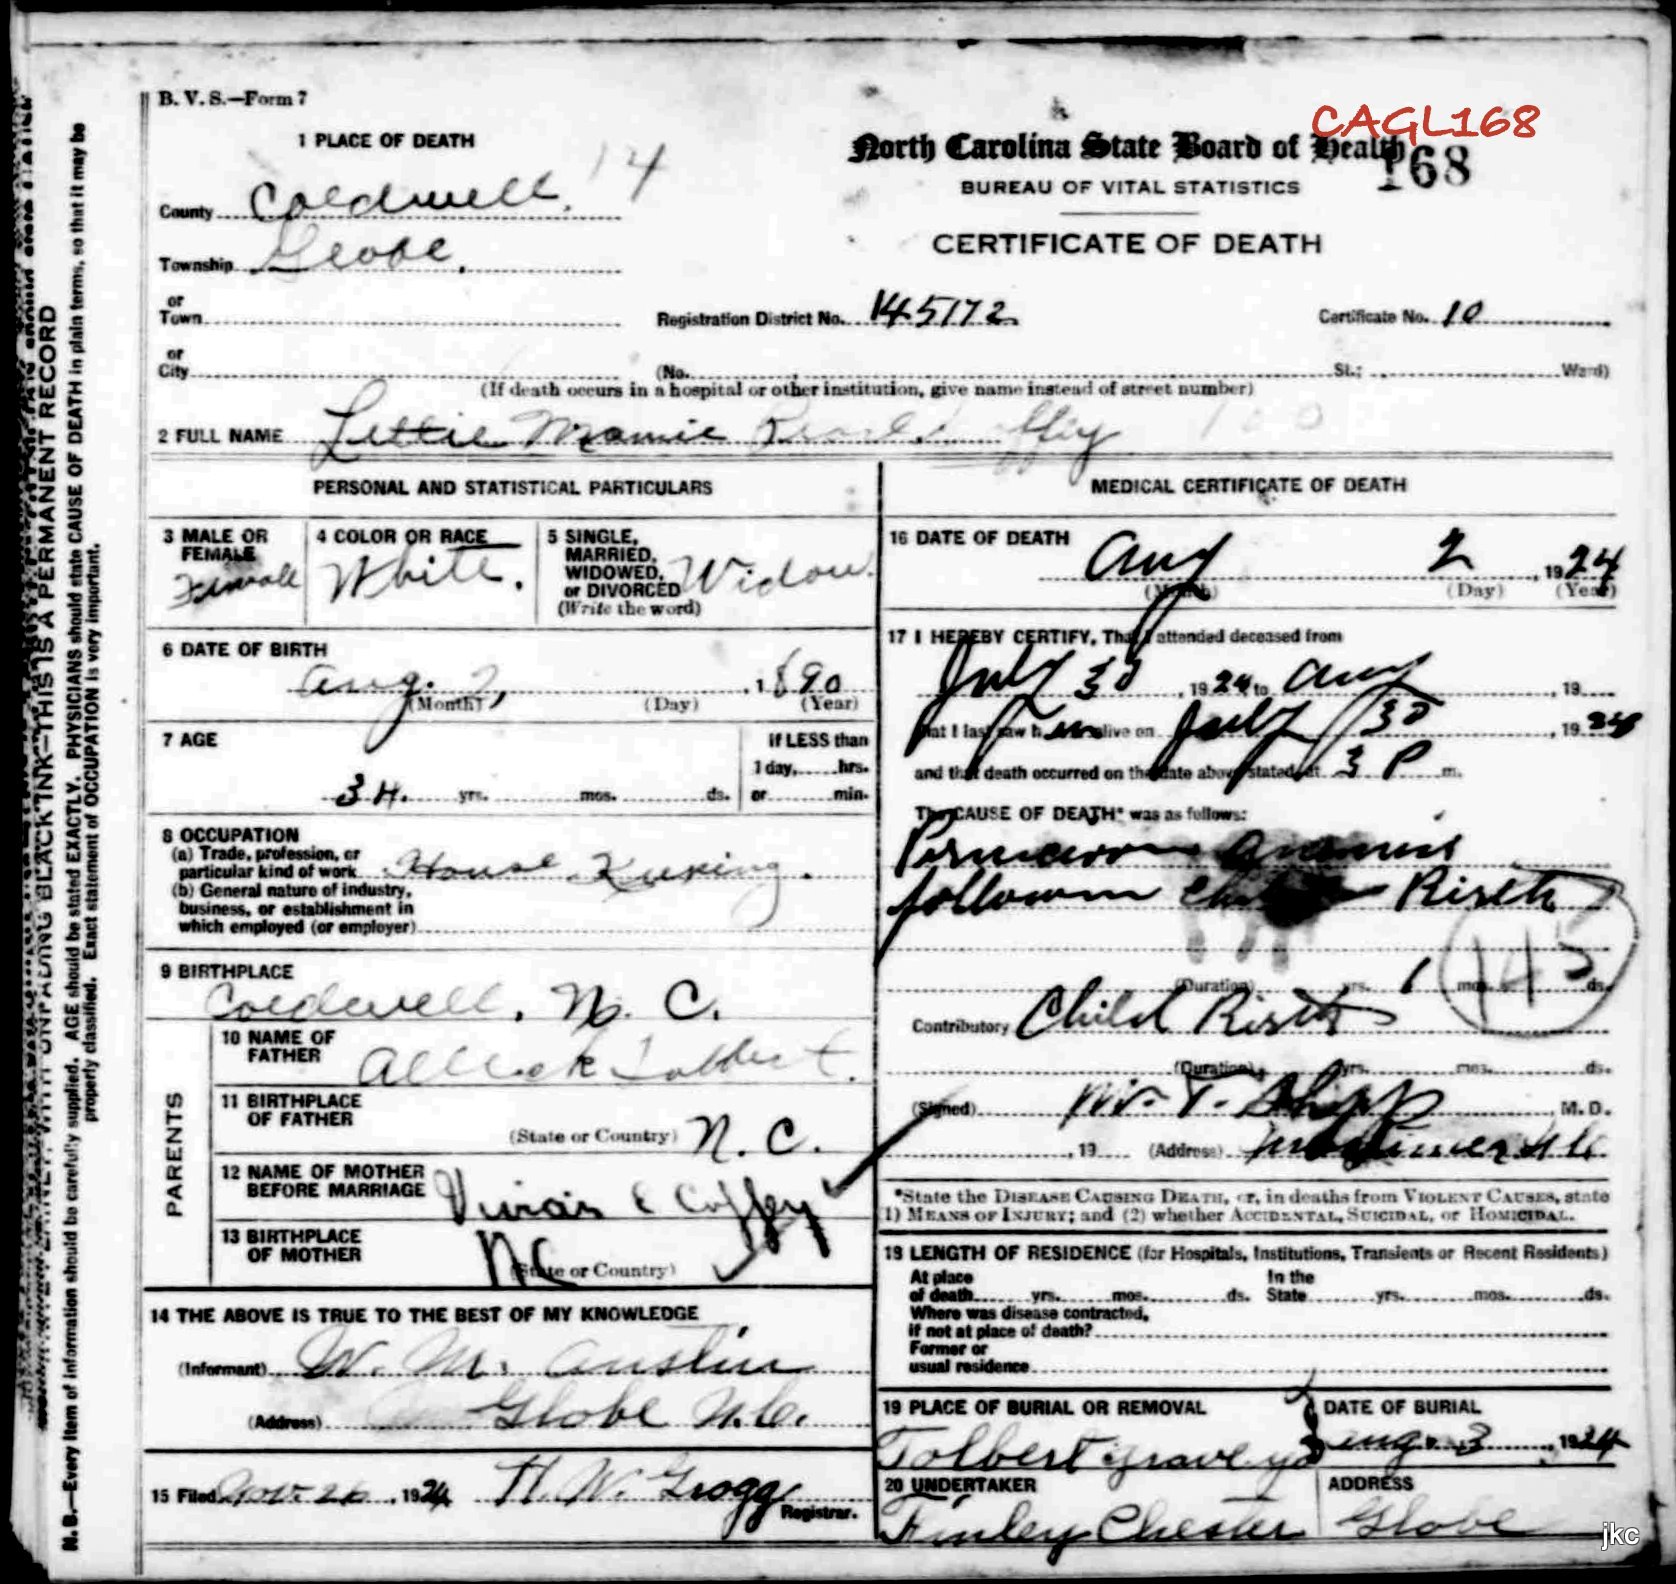 B. V. S.—Form 7
CAGL168
1 PLACE OF DEATH
14
North Carolina State Board of Health
168
BUREAU OF VITAL STATISTICS
County Caldwell.
CERTIFICATE OF DEATH
Township Globe.
or
Town
Registration District No. 145172
Certificate No. 10
or
City
(No.
St.;
Ward)
(If death occurs in a hospital or other institution, give name instead of street number)
2 FULL NAME Lettie Mamie
PERSONAL AND STATISTICAL PARTICULARS
3 MALE OR
FEMALE
Female
4 COLOR OR RACE
White.
5 SINGLE,
MARRIED,
WIDOWED,
or DIVORCED
(Write the word)
Widow.
6 DATE OF BIRTH
Aug. 2, 1890
(Month) (Day) (Year)
7 AGE
34. yrs. mos. ds.
If LESS than
1 day, hrs.
or min.
8 OCCUPATION
(a) Trade, profession, or
particular kind of work House Keeping.
(b) General nature of industry,
business, or establishment in
which employed (or employer)
9 BIRTHPLACE
Caldwell, N. C.
PARENTS
10 NAME OF
FATHER
Tolbert.
11 BIRTHPLACE
OF FATHER
(State or Country) N. C.
12 NAME OF MOTHER
BEFORE MARRIAGE
E Coffey
13 BIRTHPLACE
OF MOTHER
(State or Country)
NC
14 THE ABOVE IS TRUE TO THE BEST OF MY KNOWLEDGE
(Informant) W. M. Austin
(Address) Globe N.C.
15 Filed Nov. 26, 1924 H. W. Gragg
Registrar.
MEDICAL CERTIFICATE OF DEATH
16 DATE OF DEATH
Aug 2, 1924
(Month) (Day) (Year)
17 I HEREBY CERTIFY, That I attended deceased from
July 30, 1924 to Aug, 19
that I last saw her alive on July 30, 1924
and that death occurred on the date above stated, at 3 P m.
The CAUSE OF DEATH* was as follows:
Pernicious Anemia
following Child Birth
145
(Duration) yrs. 1 mos. ds.
Contributory Child Birth
(Duration) yrs. mos. ds.
(Signed) M. T. Shipp, M. D.
, 19 (Address) Mortimer N C
*State the DISEASE CAUSING DEATH, or, in deaths from VIOLENT CAUSES, state
1) MEANS OF INJURY; and (2) whether ACCIDENTAL, SUICIDAL, or HOMICIDAL.
18 LENGTH OF RESIDENCE (for Hospitals, Institutions, Transients or Recent Residents)
At place
of death yrs. mos. ds.
In the
State yrs. mos. ds.
Where was disease contracted,
if not at place of death?
Former or
usual residence
19 PLACE OF BURIAL OR REMOVAL
Tolbert grave yd
DATE OF BURIAL
Aug. 3, 1924
20 UNDERTAKER
Finley Chester
ADDRESS
Globe
N. B.—Every item of information should be carefully supplied. AGE should be stated EXACTLY. PHYSICIANS should state CAUSE OF DEATH in plain terms, so that it may be
properly classified. Exact statement of OCCUPATION is very important.
WRITE PLAINLY, WITH UNFADING BLACK INK—THIS IS A PERMANENT RECORD
jkc